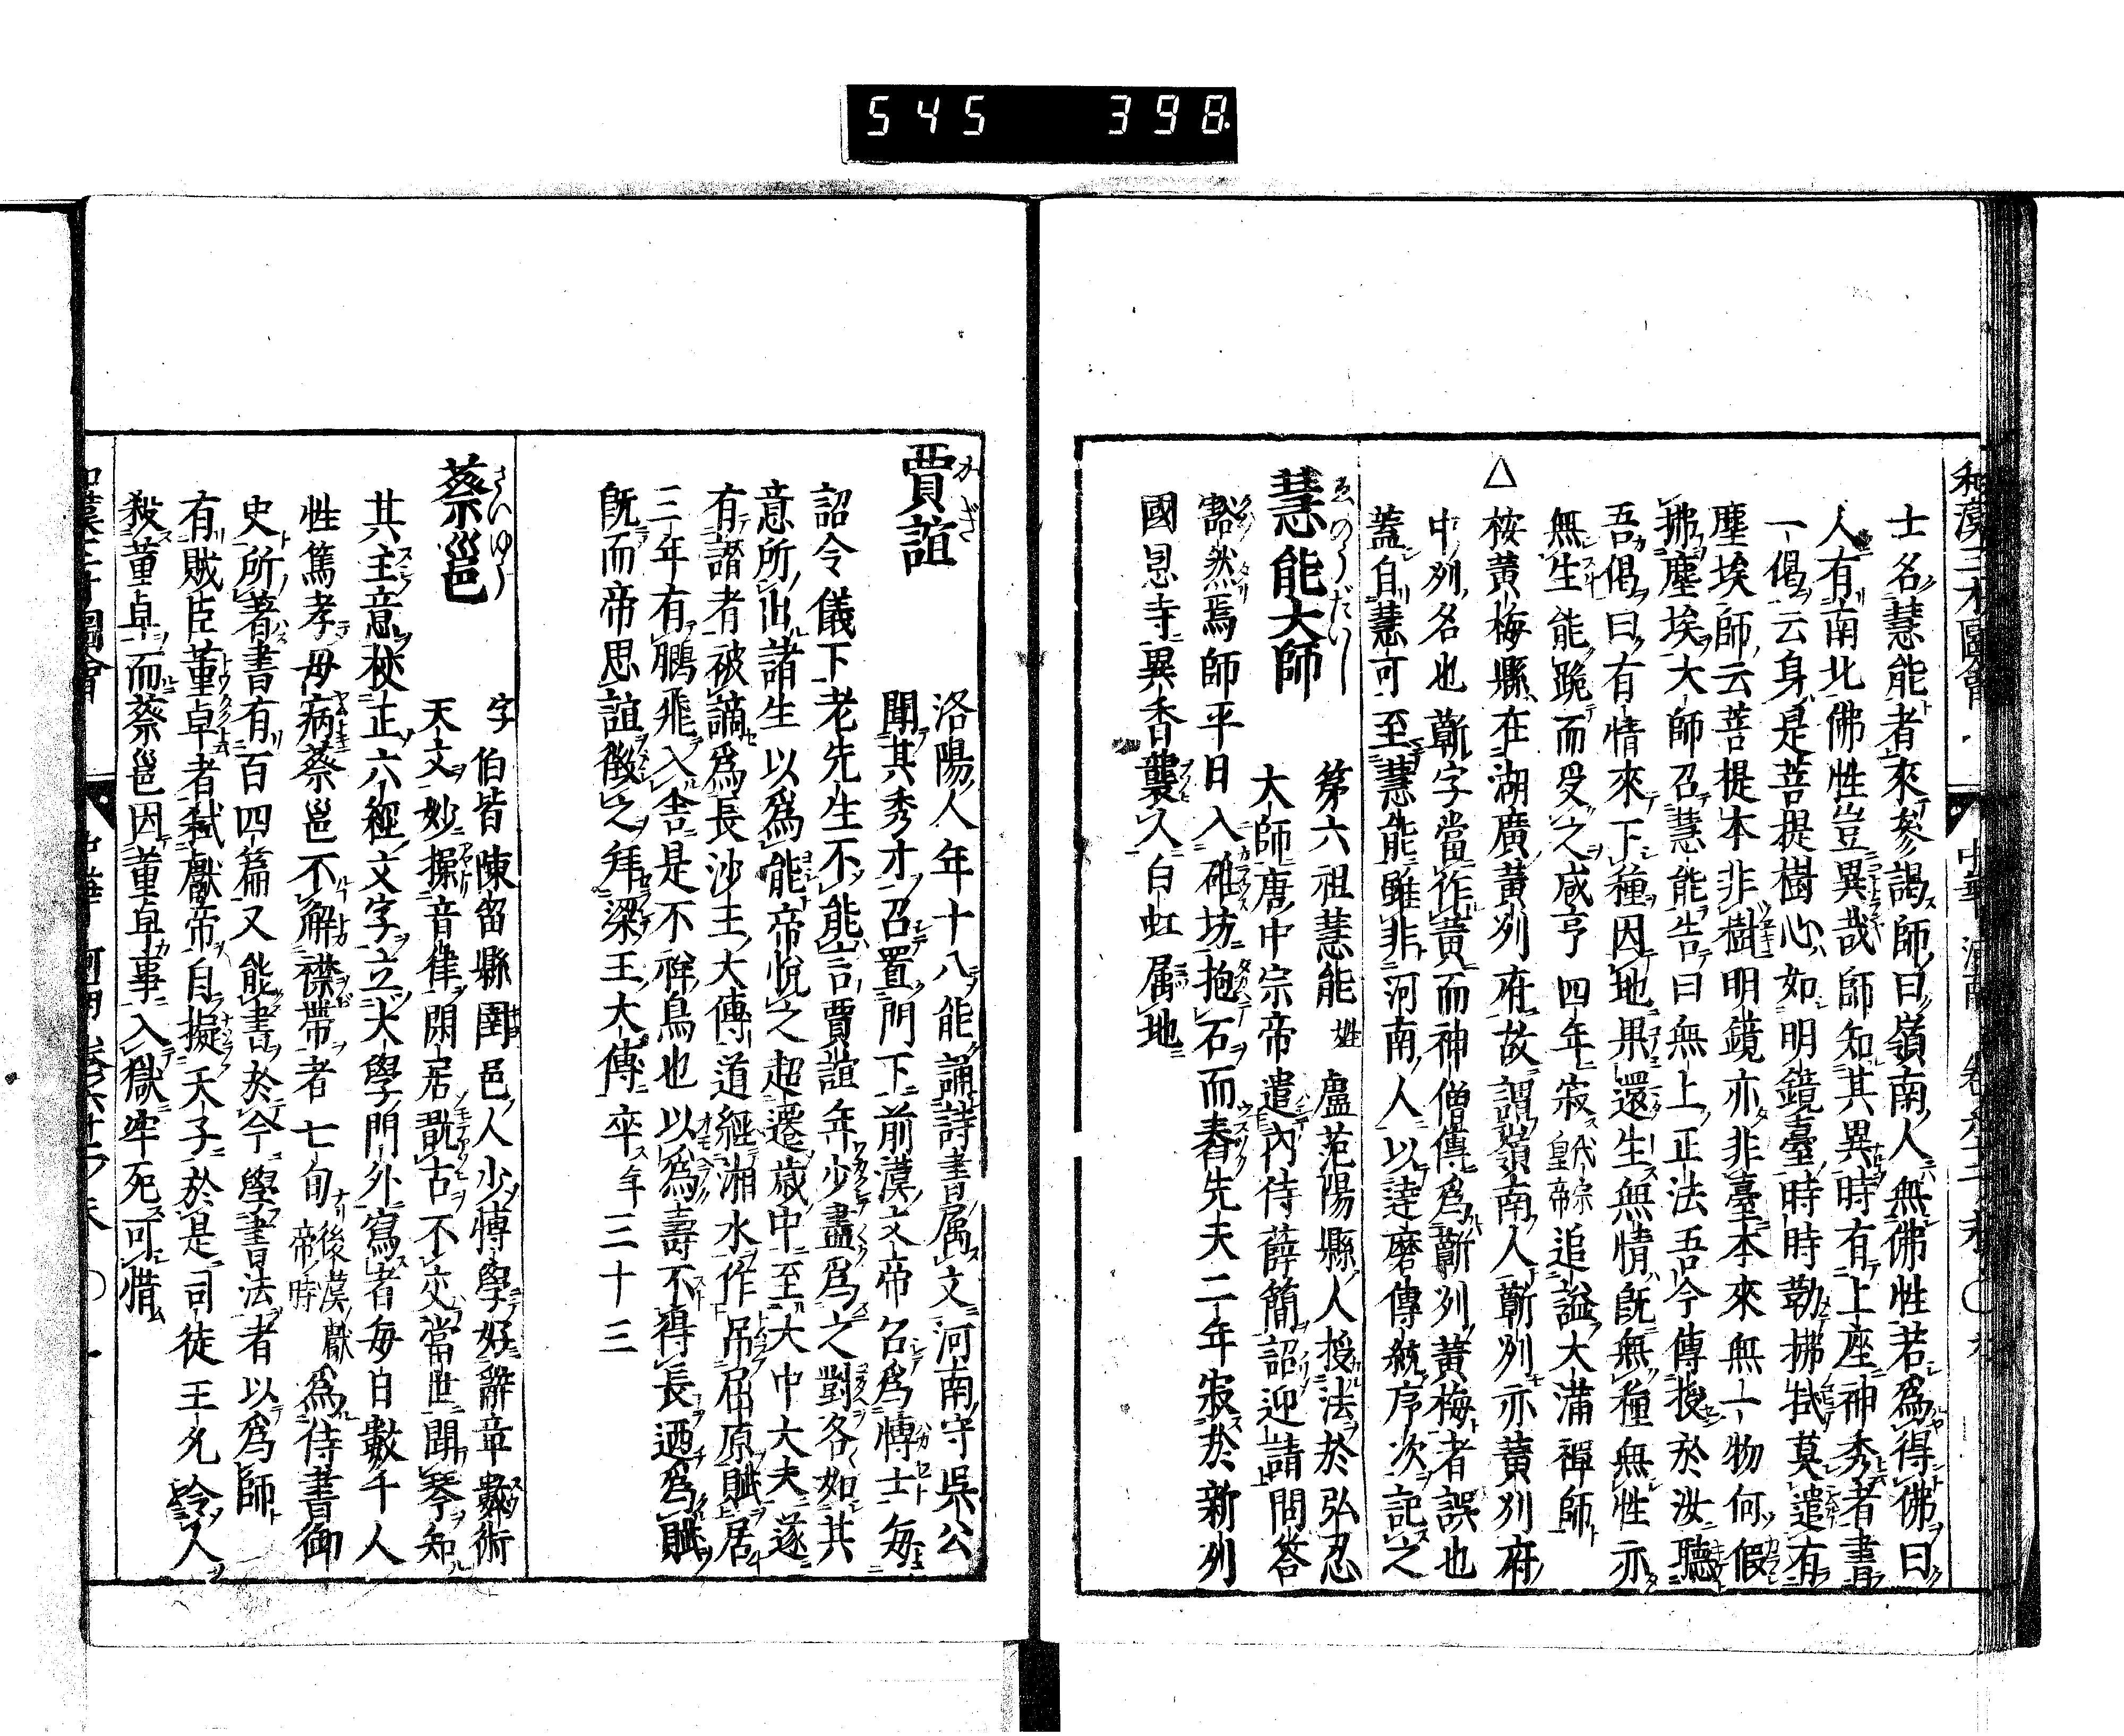 545 398
和漢三才圖會
士名慧能者來參謁師曰嶺南人無佛性若爲得佛曰
人有南北佛性豈異哉師知其異時有上座神秀者書
一偈云身是菩提樹心如明鏡臺時時勤拂拭莫遣有
塵埃師云菩提本非樹明鏡亦非臺本來無一物何假
拂塵埃大師召慧能告曰無上正法吾今傳授於汝聽
吾偈曰有情來下種因地果還生無情既無種無性亦
無生能跪而受之咸亨四年寂代宗皇帝追謚大滿禪師
△桉黃梅縣在湖廣黃州府故謂嶺南人蘄州亦黃州府
中州名也蘄字當作黃而神僧傳爲蘄州黃梅者誤也
蓋自慧可至慧能雖非河南人以達磨傳統序次記之
慧能大師 ゑのうだいし
第六祖慧能姓盧范陽縣人授法於弘忍
大師唐中宗帝遣內侍薛簡詔迎請問答
豁然焉師平日入碓坊抱石而舂先天二年寂於新州
國恩寺異香襲人白虹屬地
賈誼 かぎ
洛陽人年十八能誦詩書屬文河南守吳公
聞其秀才召置門下前漢文帝召爲博士每
詔令儀下老先生不能言賈誼年少盡爲之對各如其
意所出諸生以爲能帝悅之超遷歲中至大中大夫遂
有譖者被謫爲長沙王大傅道經湘水作吊屈原賦居
三年有鵩飛入舍是不祥鳥也以爲壽不得長迺爲賦
既而帝思誼徵之拜梁王大傅卒年三十三
蔡邕 さいゆう
字伯皆陳留縣圉邑人少博學好辭章數術
天文妙操音律閑居翫古不交當世聞琴知
其主意校正六經文字立大學門外寫者每日數千人
性篤孝母病蔡邕不解襟帶者七旬後漢獻帝時爲侍書御
史所著書有百四篇又能書於今學書法者以爲師
有賊臣董卓者弑獻帝自擬天子於是司徒王允令人
殺董卓而蔡邕因董卓事入獄牢死可惜